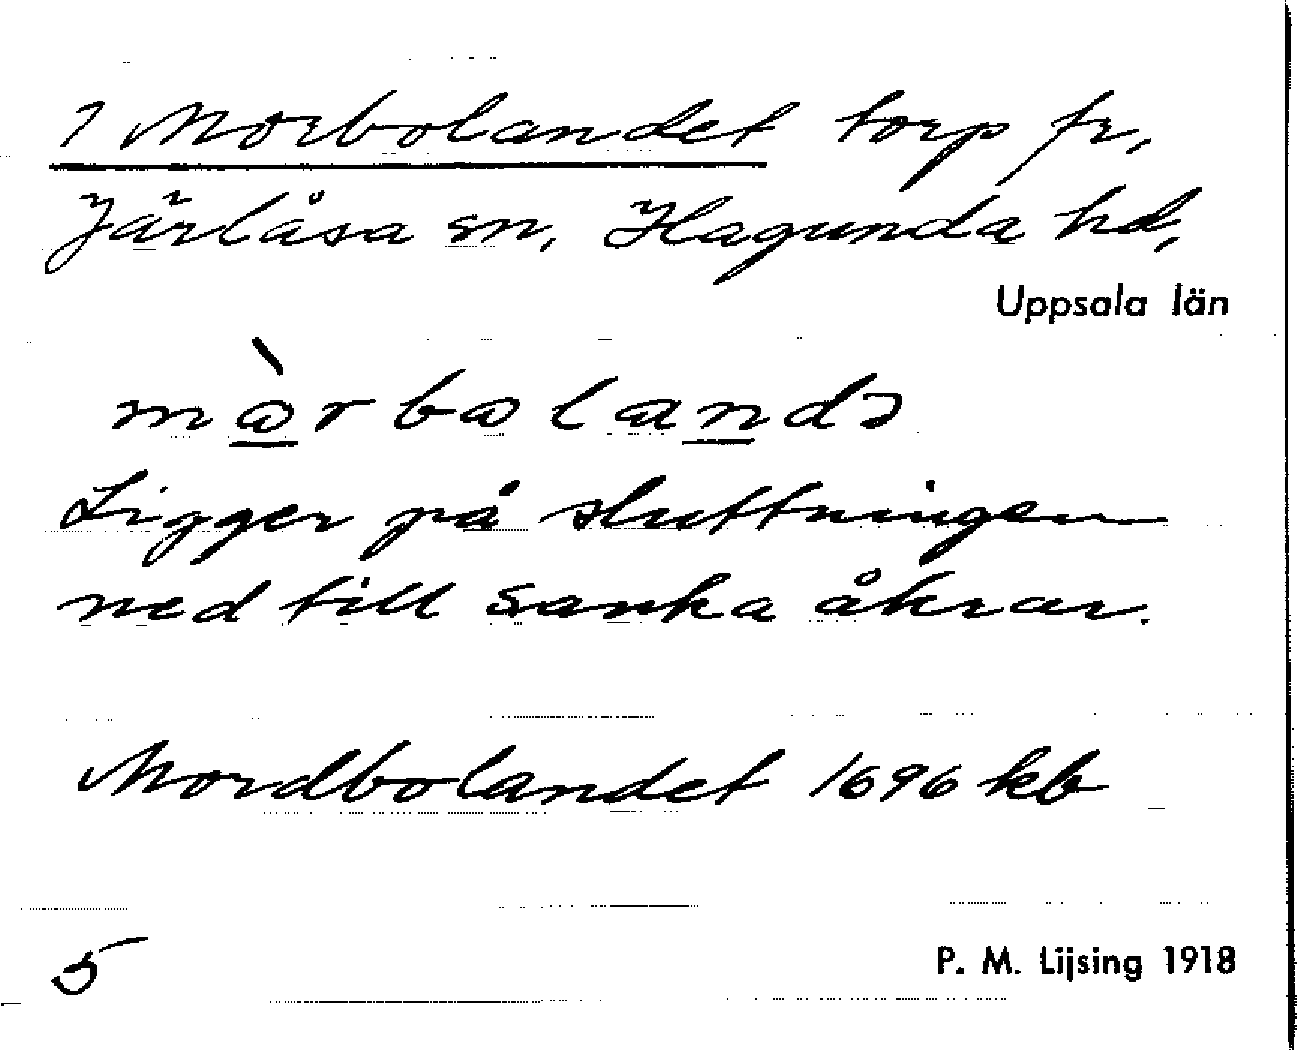 1 Morbolandet torp fr,
Järlåsa sn, Hagunda hd,
Uppsala län
mòrbolandə
Ligger på sluttningen
ned till sanka åkrar.
Mordbolandet 1696 kb
5
P. M. Lijsing 1918